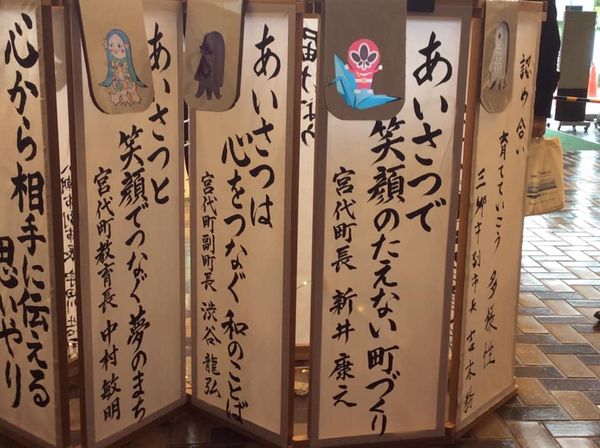 認め合い
育てていこう 多様性
三郷市副市長
あいさつで
笑顔のたえない町づくり
宮代町長 新井 康之
あいさつは
心をつなぐ 和のことば
宮代町副町長 渋谷 龍弘
あいさつと
笑顔でつなぐ夢のまち
宮代町教育長 中村 敏明
心から相手に伝える
思いやり